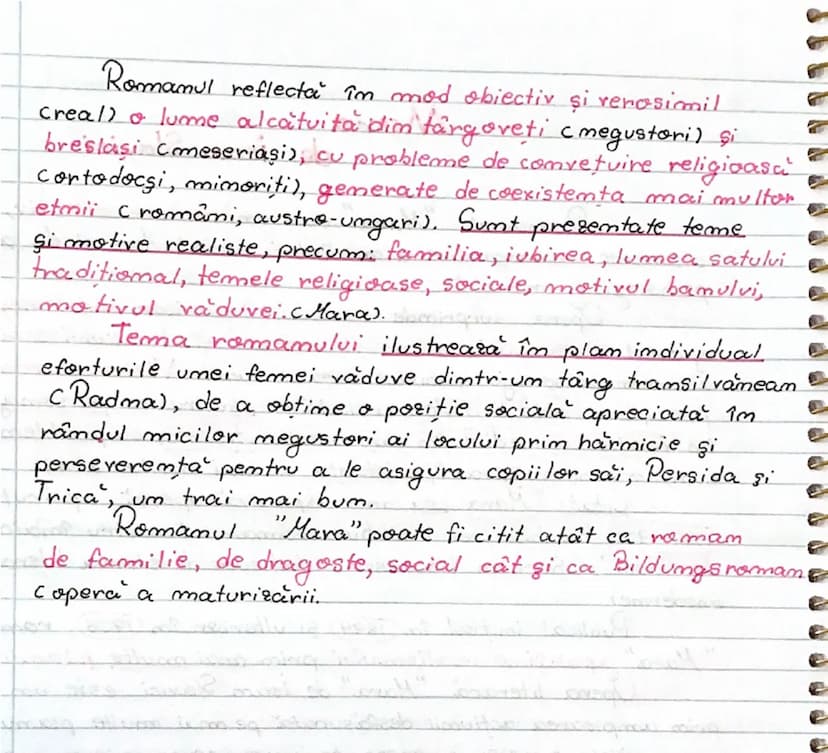 Romanul reflectă în mod obiectiv și verosimil
(real) o lume alcătuită din târgoveți (megustori) și
breslași (meseriași), cu probleme de convețuire religioasă
(ortodocși, minoriți), generate de coexistența mai multor
etnii (români, austro-ungari). Sunt prezentate teme
și motive realiste, precum: familia, iubirea, lumea satului
tradițional, temele religioase, sociale, motivul banului,
motivul văduvei.(Mara).
Tema romanului ilustrează în plan individual
eforturile unei femei văduve dintr-un târg transilvănean
(Radna), de a obține o poziție socială apreciată în
rândul micilor megustori ai locului prin hărnicie și
perseverența pentru a le asigura copiilor săi, Persida și
Trică, un trai mai bun.
Romanul "Mara" poate fi citit atât ca roman
de familie, de dragoste, social cât și ca Bildungsroman
(operă a maturizării.